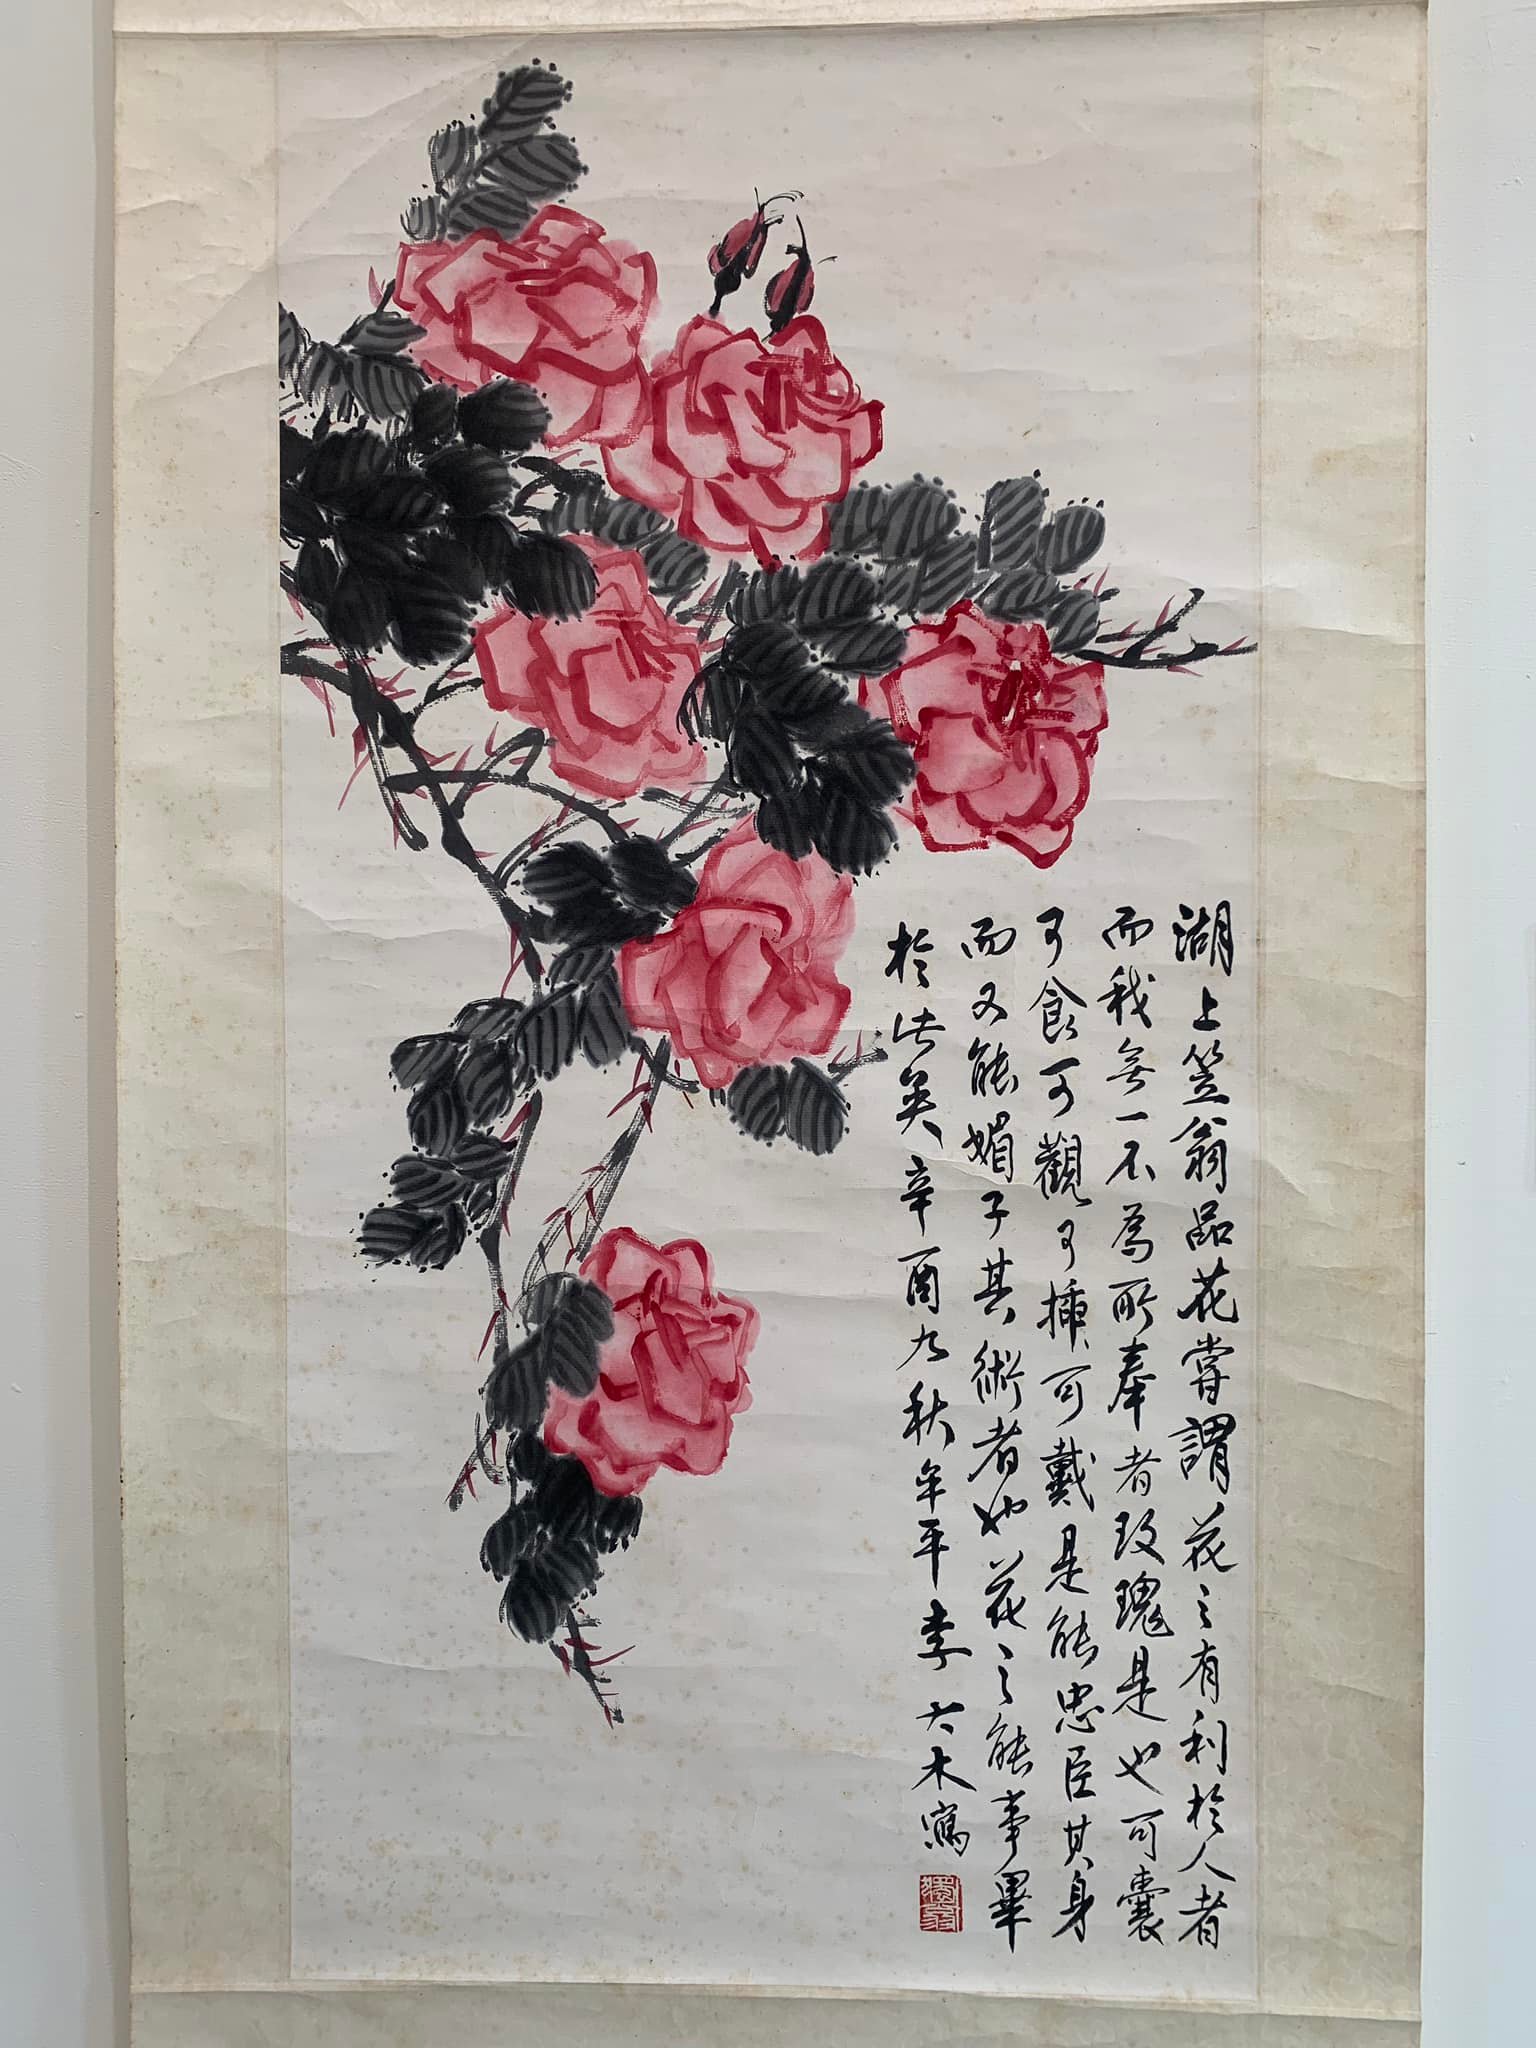 湖上笠翁品花嘗謂花之有利於人者
而我無一不為所奉者玫瑰是也可囊
可食可觀可插可戴是能忠臣其身
而又能媚子其術者也花之能事畢
於此矣辛酉九秋牟平李大木寫